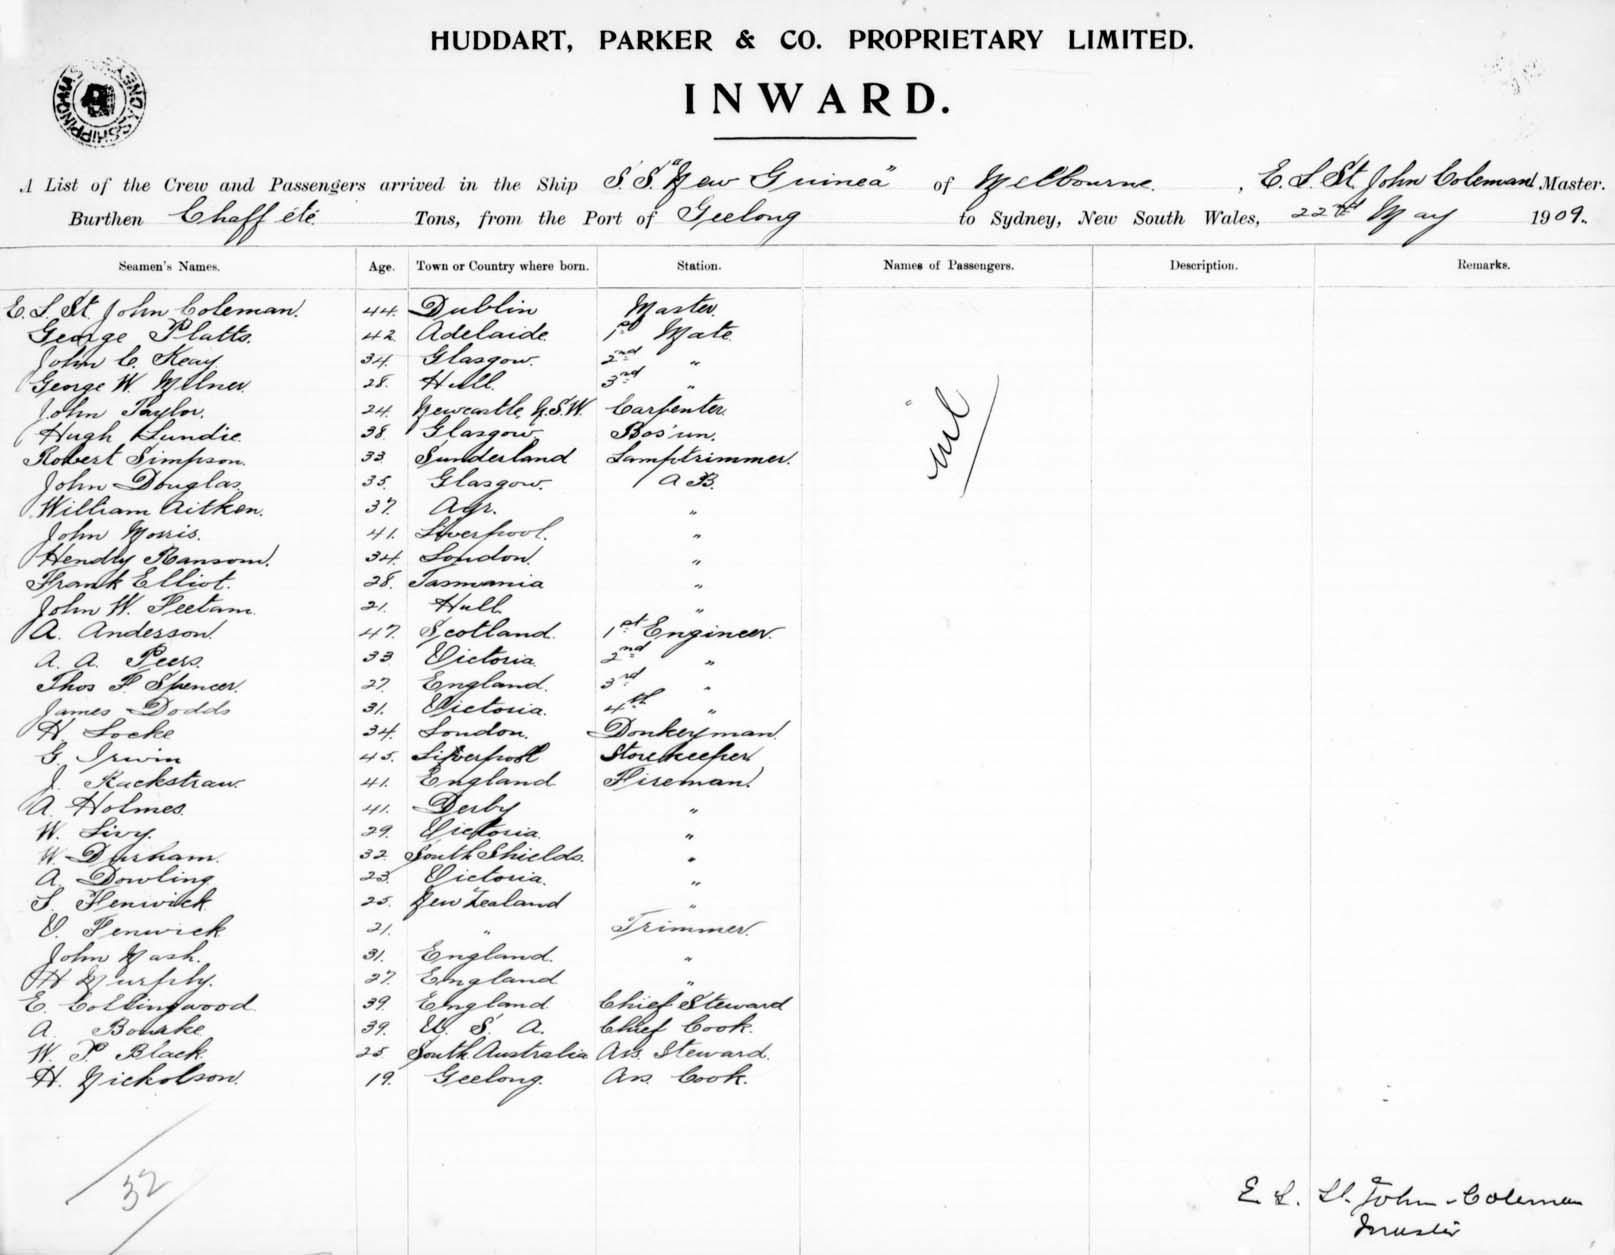 HUDDART, PARKER & CO. PROPRIETARY LIMITED.
INWARD.
A List of the Crew and Passengers arrived in the Ship S.S. "New Guinea" of Melbourne, E. S. St John Coleman Master.
Burthen Chaff etc. Tons, from the Port of Geelong to Sydney, New South Wales, 22nd May 1909.
Seamen's Names. Age. Town or Country where born. Station. Names of Passengers. Description. Remarks.
E. S. St. John Coleman. 44. Dublin Master.
George Platts. 42. Adelaide 1st Mate
John C. Keay 34. Glasgow. 2nd "
George W. Milner 28. Hull. 3rd "
John Taylor. 24. Newcastle, N.S.W. Carpenter.
nil
Hugh Lundie 38. Glasgow. Bos'un.
Robert Simpson. 33. Sunderland Lamptrimmer.
John Douglas 35. Glasgow. A B.
William Aitken. 37. Ayr. "
John Morris. 41. Liverpool. "
Hendly Ransom. 34. London. "
Frank Elliot. 28. Tasmania "
John W. Feetam. 21. Hull "
A. Anderson. 47. Scotland. 1st Engineer.
A. A. Peers. 33. Victoria. 2nd "
Thos F. Spencer. 27. England. 3rd "
James Dodds 31. Victoria. 4th "
H. Locke 34. London. Donkeyman.
G. Irwin 45. Liverpool Storekeeper
J. Rackstraw. 41. England Fireman.
A. Holmes. 41. Derby "
W. Livy. 29. Victoria. "
W. Durham. 32. South Shields. "
A. Dowling 23. Victoria. "
S. Fenwick 25. New Zealand "
V. Fenwick 21. " Trimmer.
John Nash. 31. England. "
H Murphy. 27. England "
E. Collingwood 39. England. Chief Steward
A. Bourke 39. U. S. A. Chief Cook.
W. P. Black. 25. South Australia Ass. Steward.
H. Nicholson. 19. Geelong. Ass. Cook.
32
E. S. St. John-Coleman
Master